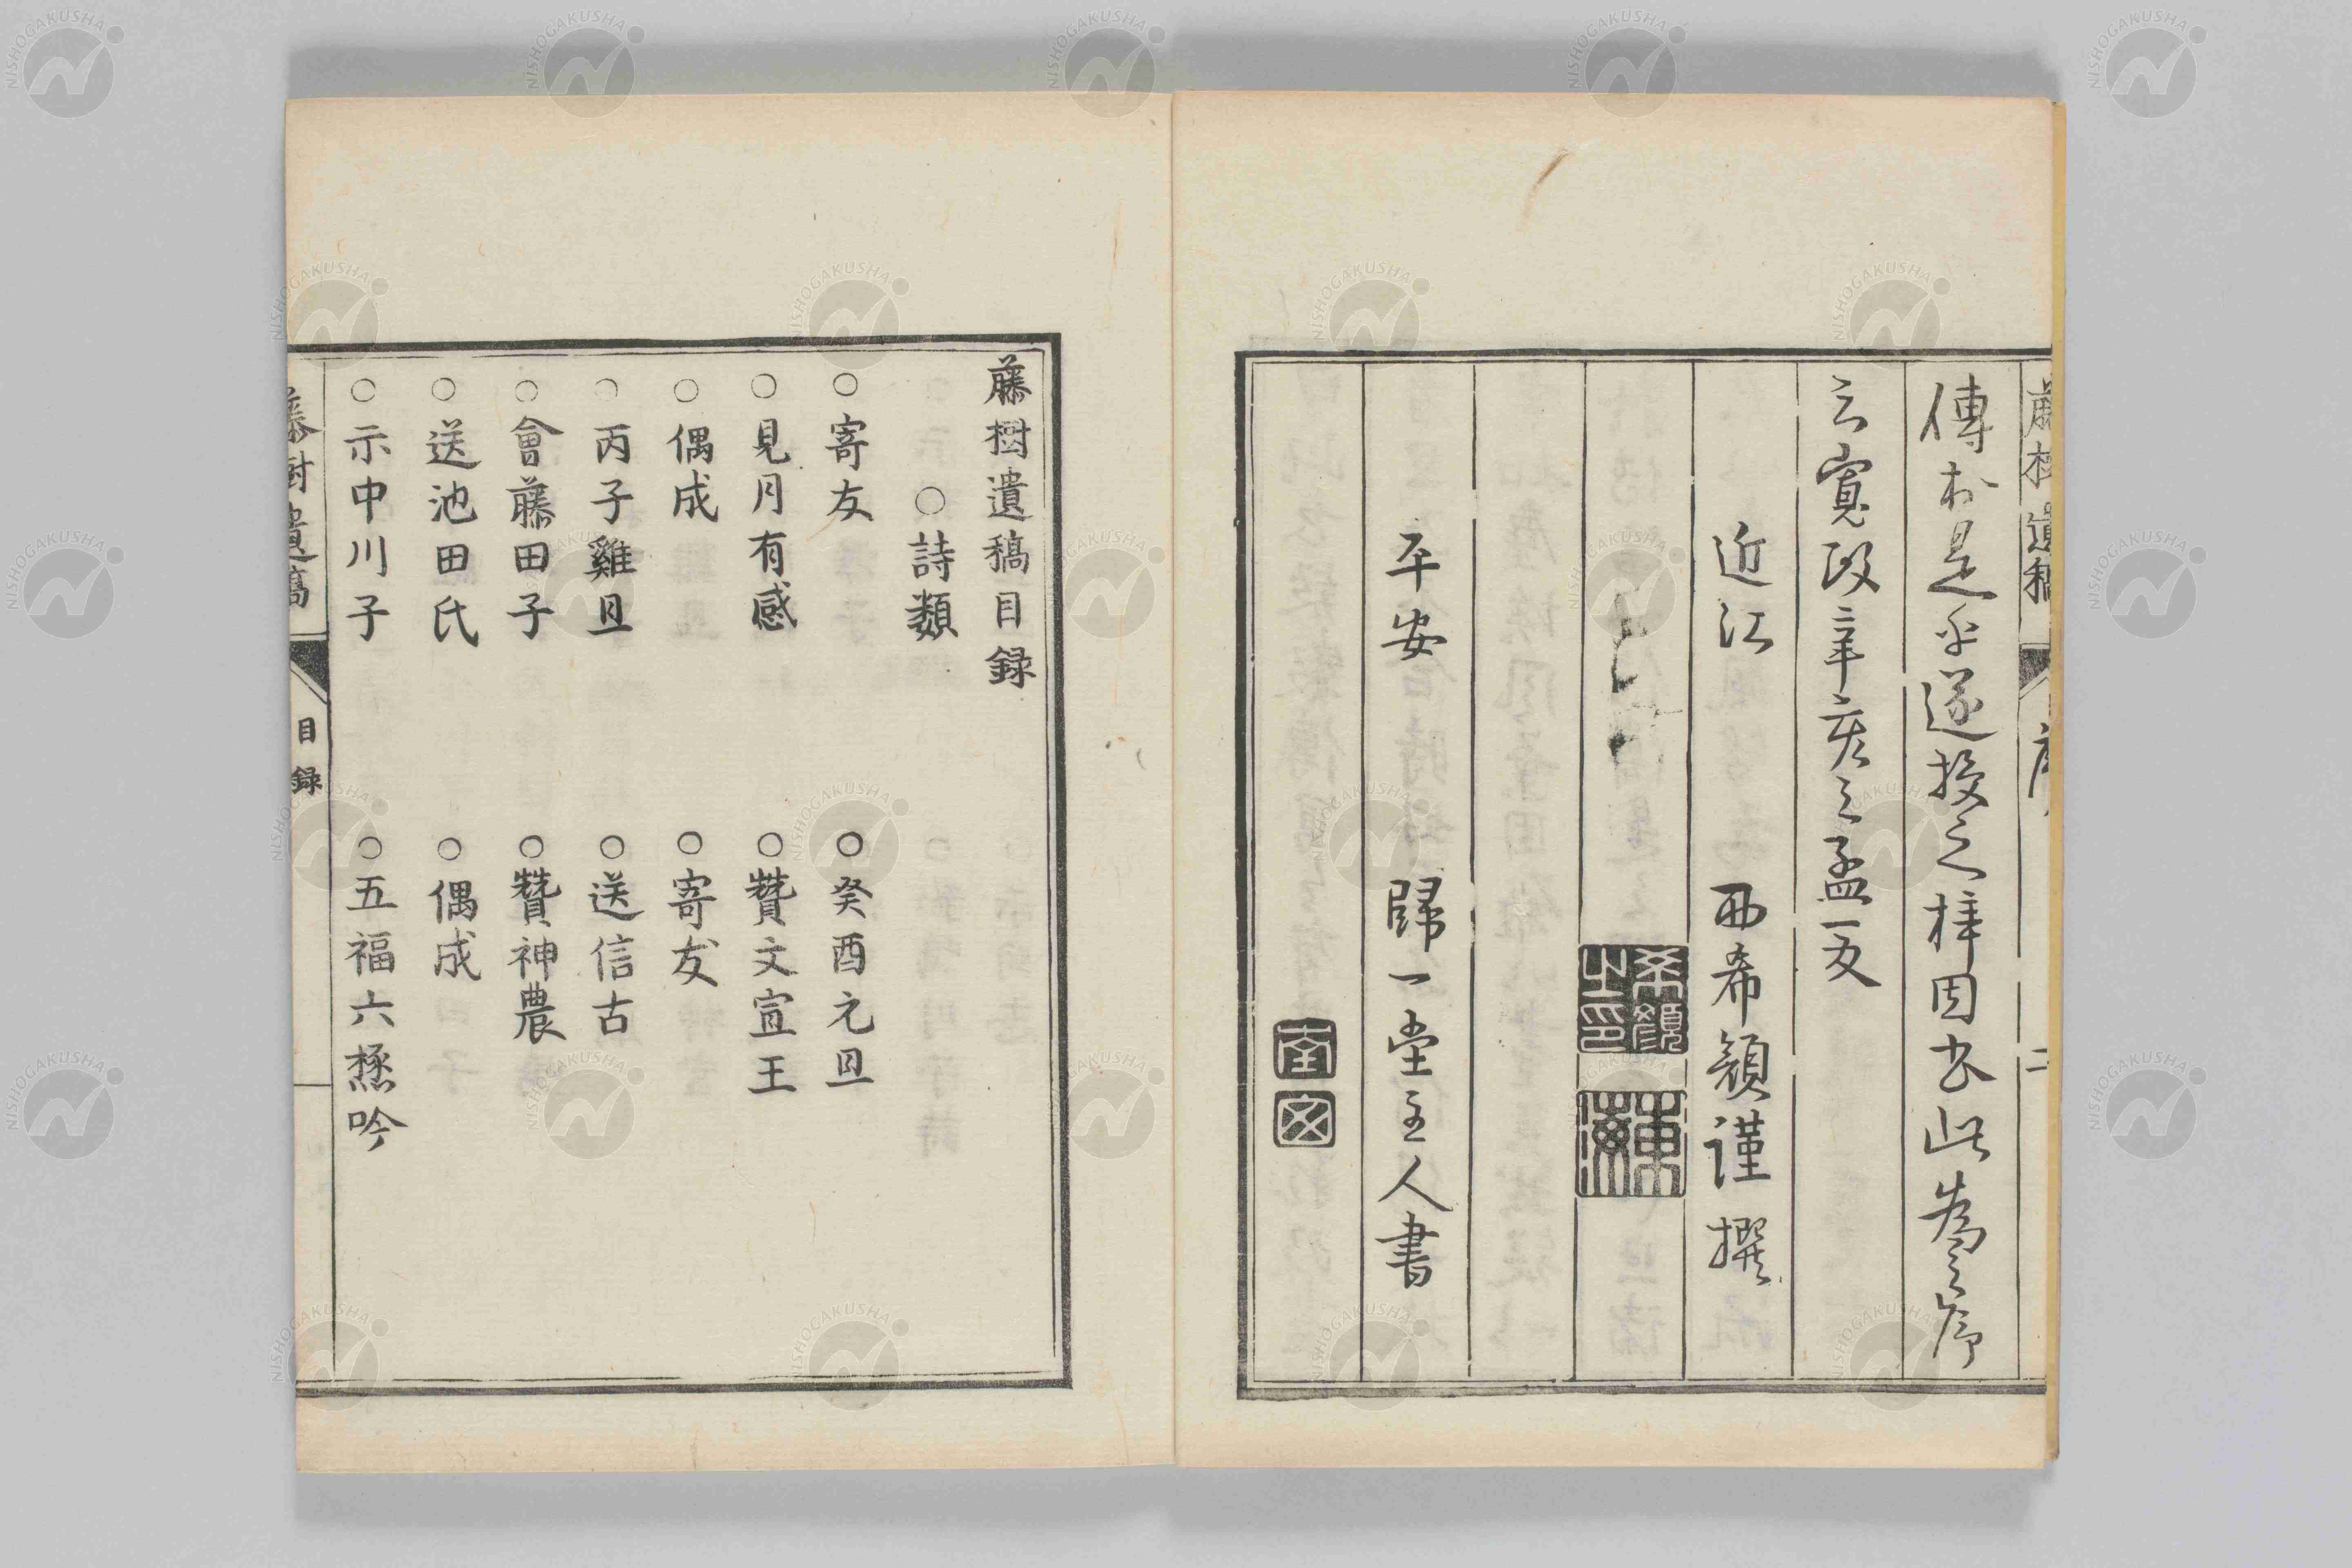 藤樹遺稿 序 二
傳於是乎遂授之梓因書此為之序
云寛政辛亥之孟夏
近江 西希顏謹撰
希顏之印
平安 歸一堂主人書
藤樹遺稿目録
○詩類
○寄友 ○癸酉元旦
○見月有感 ○贊文宣王
○偶成 ○寄友
○丙子雞旦 ○送信古
○會藤田子 ○贊神農
○送池田氏 ○偶成
○示中川子 ○五福六極吟
藤樹遺稿 目録
NISHOGAKUSHA